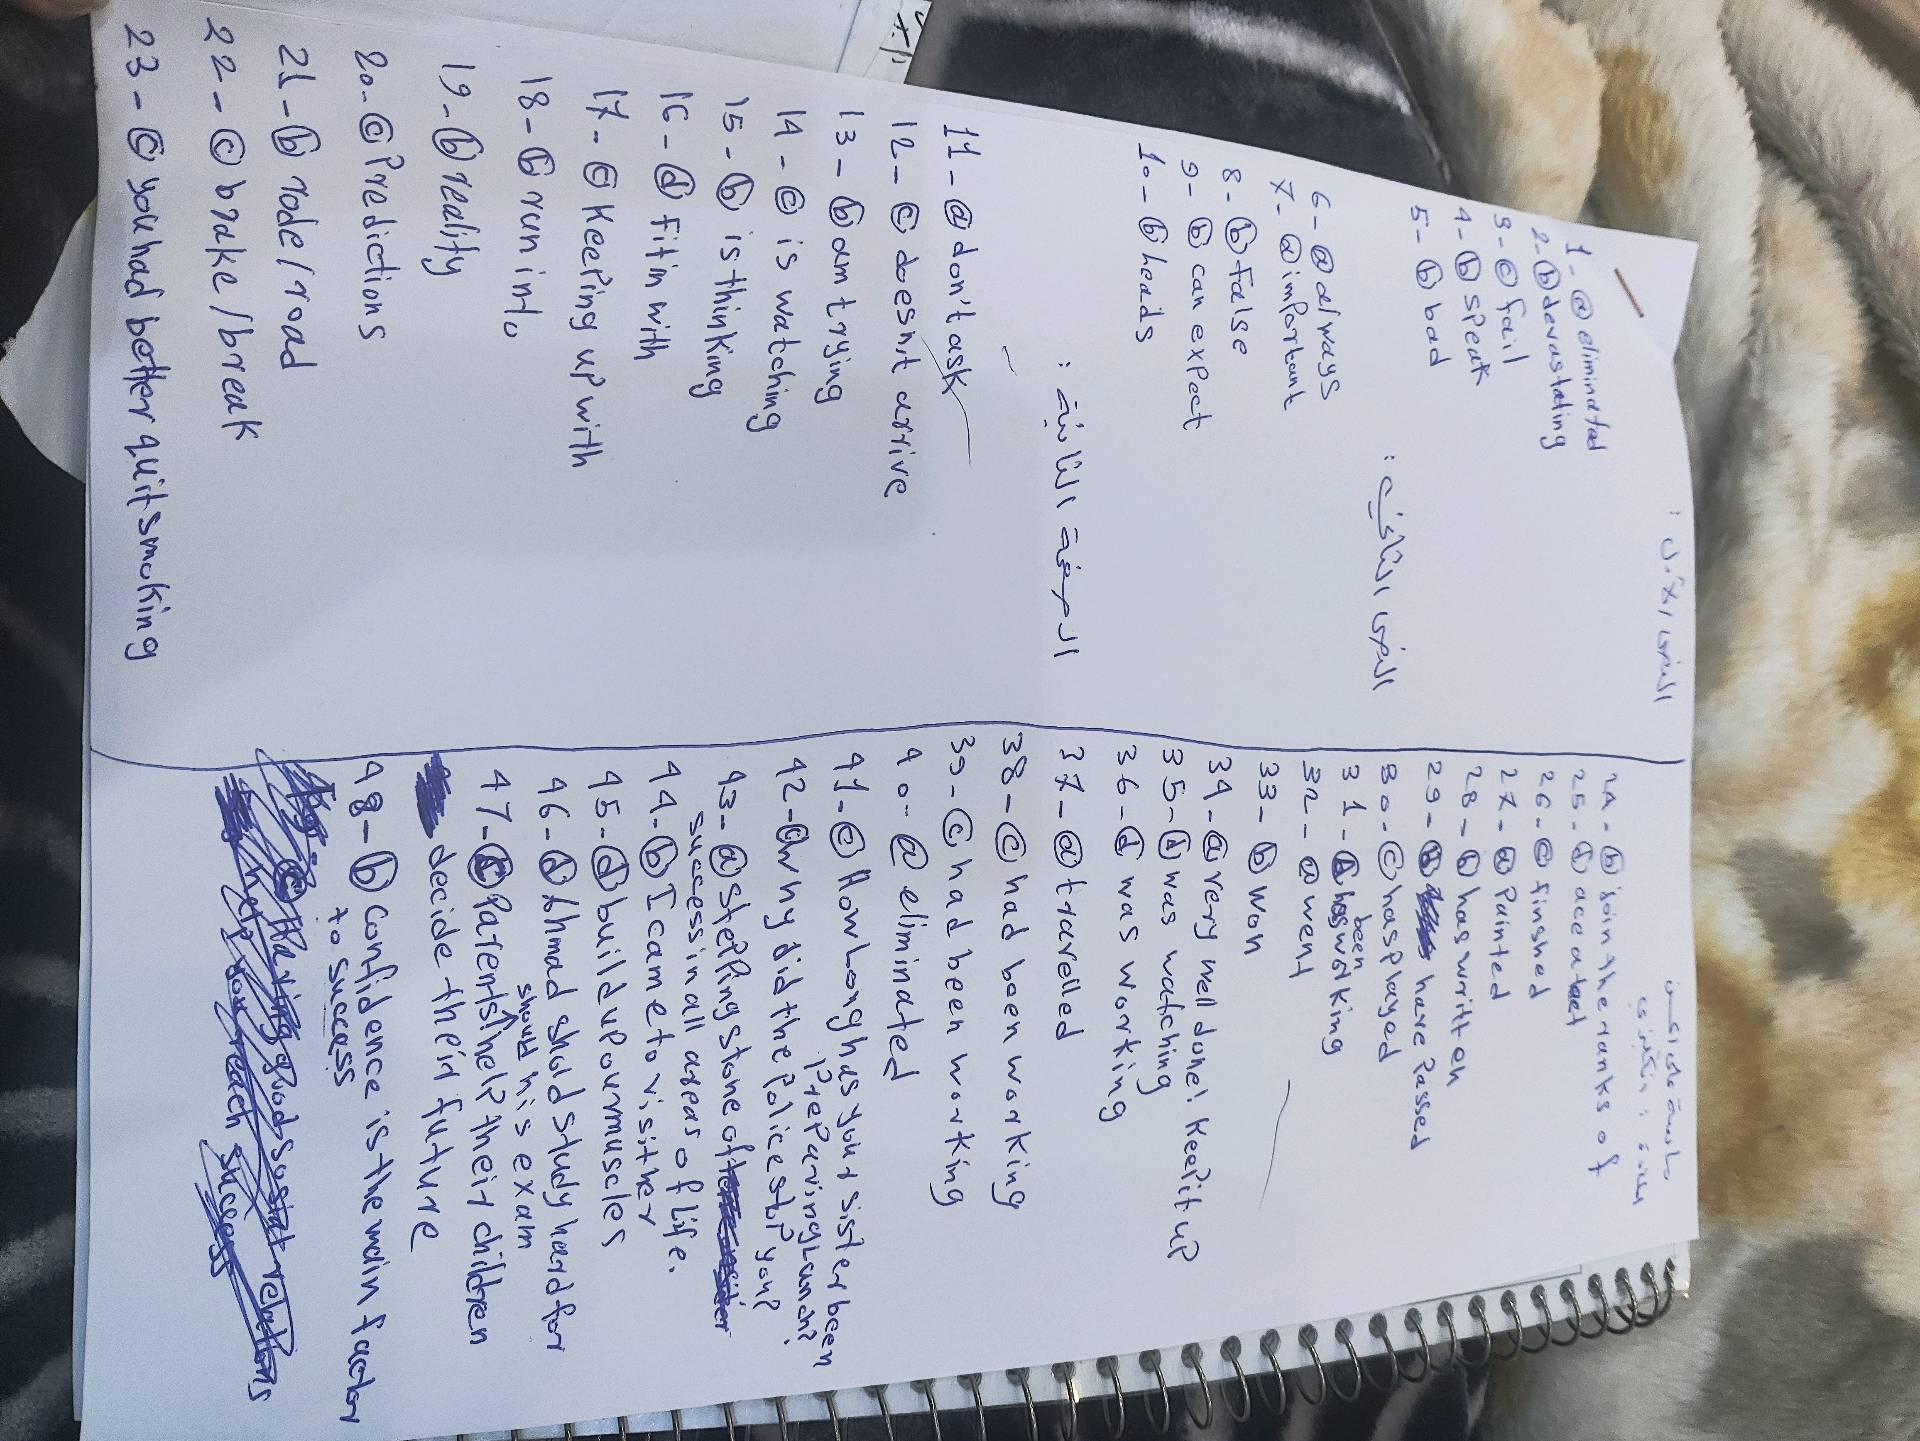 النص الأول :
1- ⓐ eliminated
2- ⓑ devastating
3- ⓒ fail
4- ⓑ speak
5- ⓑ bad
النص الثاني :
6- ⓐ always
7- ⓐ important
8- ⓑ false
9- ⓑ can expect
10- ⓑ heads
الصفحة الثانية :
11- ⓐ don't ask
12- ⓒ doesn't arrive
13- ⓑ am trying
14- ⓒ is watching
15- ⓑ is thinking
16- ⓓ fit in with
17- ⓒ keeping up with
18- ⓑ run into
19- ⓑ reality
20- ⓒ Predictions
21- ⓑ rode/road
22- ⓒ brake/break
23- ⓒ you had better quit smoking
24- ⓑ join the ranks of
25- ⓓ ace a test
26- ⓒ finshed
27- ⓐ Painted
28- ⓑ has written
29- have Passed
30- ⓒ has played
31- has been working
32- ⓐ went
33- ⓑ won
34- ⓐ very well done! Keep it up
35- ⓓ was watching
36- ⓓ was working
37- ⓐ travelled
38- ⓒ had been working
39- ⓒ had been working
40- ⓐ eliminated
41- ⓒ How Long has your sister been
preparing Lunch?
42- ⓒ why did the police stop you?
43- ⓐ stepping stone of
success in all areas of life.
44- ⓑ I came to visit her
45- ⓓ build up our muscles
46- ⓓ Ahmad should study hard for
his exam
47- ⓒ Parents should help their children
decide their future
48- ⓑ confidence is the main factor
to success